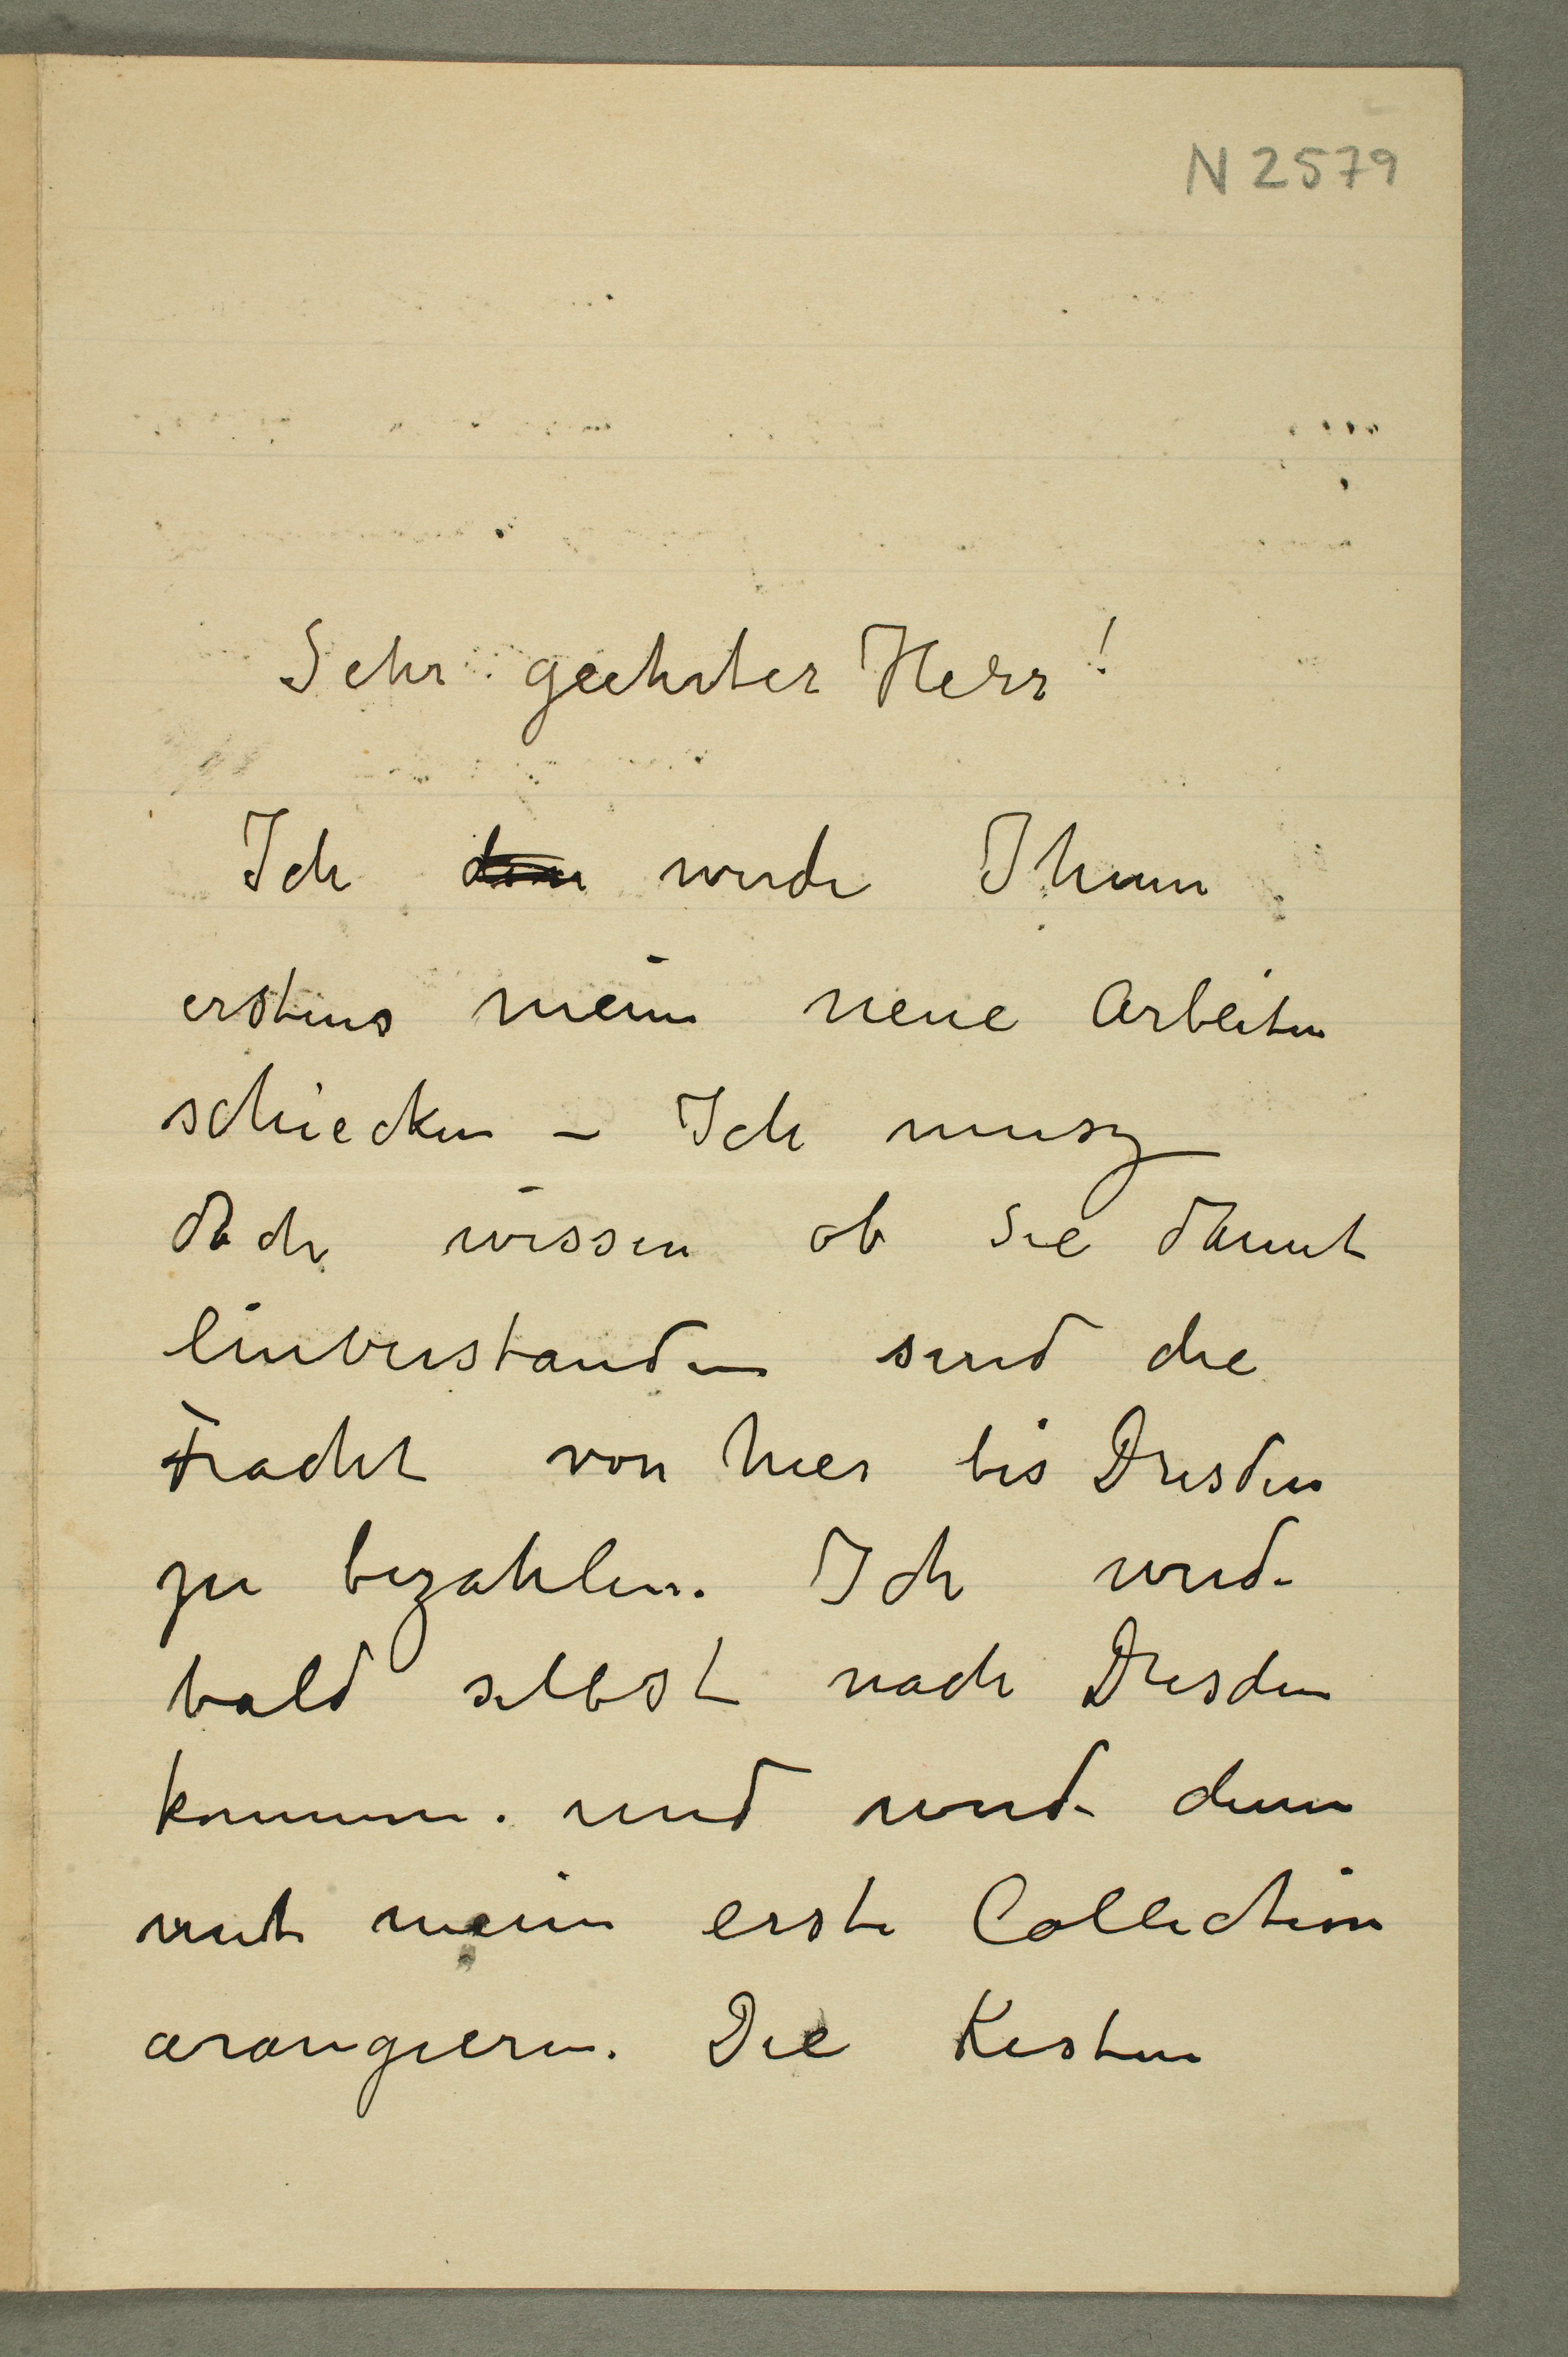 N 2579
Sehr geehrter Herr!
Ich werde Ihnen
erstens meine neue Arbeiten
schiecken – Ich musz
doch wissen ob Sie damit
einverstanden sind die
Fracht von hier bis Dresden
zu bezahlen. Ich werde
bald selbst nach Dresden
kommen. und werde denn
mit meine erste Collection
arangieren. Die Kisten